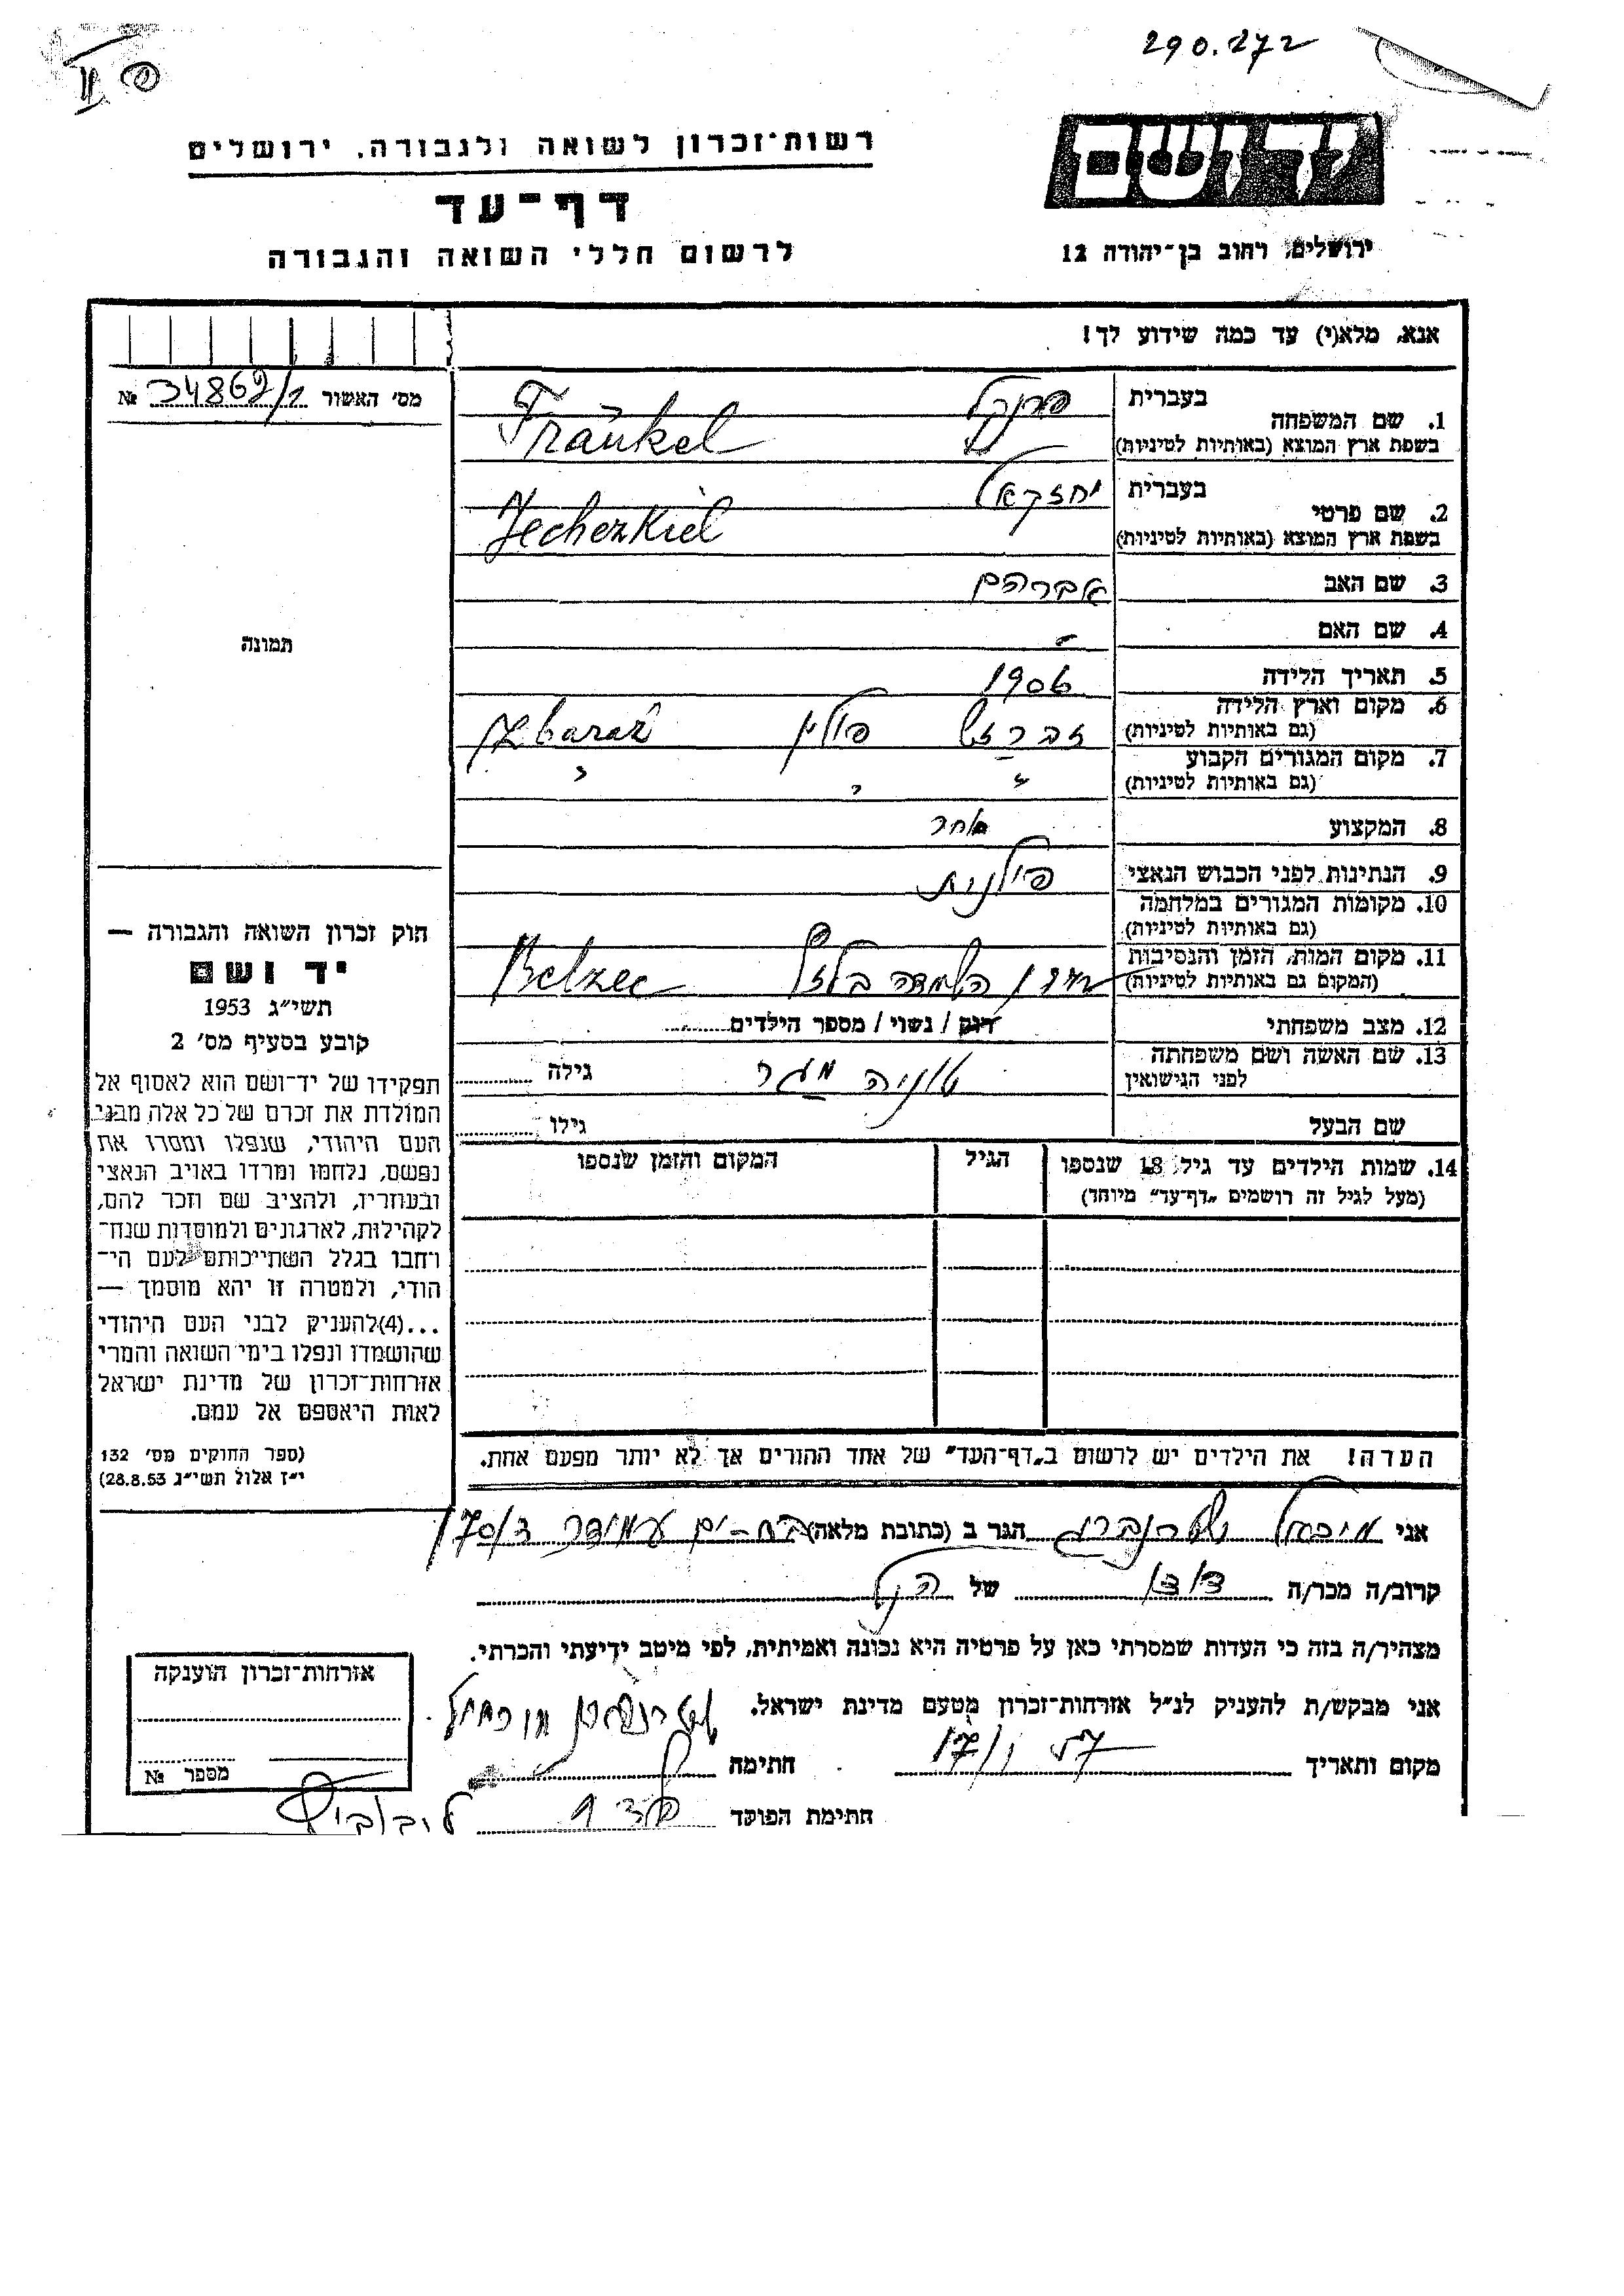 290.272
II
יד ושם
ירושלים, רחוב בן־יהודה 12
רשות־זכרון לשואה ולגבורה, ירושלים
דף־עד
לרשום חללי השואה והגבורה
אנא, מלא(י) עד כמה שידוע לך!
מס' האשור 34862/1 №
תמונה
1. שם המשפחה
בעברית פרנקל
בשפת ארץ המוצא (באותיות לטיניות) Fränkel
2. שם פרטי
בעברית יחזקאל
בשפת ארץ המוצא (באותיות לטיניות) Jecherkiel
3. שם האב אברהם
4. שם האם -
5. תאריך הלידה 1906
6. מקום וארץ הלידה
(גם באותיות לטיניות) זברז' פולין Zbaraż
7. מקום המגורים הקבוע
(גם באותיות לטיניות) " " "
8. המקצוע סוחר
9. הנתינות לפני הכבוש הנאצי פולנית
10. מקומות המגורים במלחמה
(גם באותיות לטיניות)
11. מקום המות, הזמן והנסיבות
(המקום גם באותיות לטיניות) מחנה השמדה בלזץ Belzec
12. מצב משפחתי רוק / נשוי / מספר הילדים
13. שם האשה ושם משפחתה
לפני הנישואין טוניה מגר גילה
שם הבעל גילו
14. שמות הילדים עד גיל 18 שנספו
(מעל לגיל זה רושמים „דף־עד" מיוחד)
הגיל
המקום והזמן שנספו
הערה! את הילדים יש לרשום ב„דף־העד" של אחד ההורים אך לא יותר מפעם אחת.
חוק זכרון השואה והגבורה —
יד ושם
תשי"ג 1953
קובע בסעיף מס' 2
תפקידו של יד־ושם הוא לאסוף אל
המולדת את זכרם של כל אלה מבני
העם היהודי, שנפלו ומסרו את
נפשם, נלחמו ומרדו באויב הנאצי
ובעוזריו, ולהציב שם וזכר להם,
לקהילות, לארגונים ולמוסדות שנח־
רבו בגלל השתייכותם לעם הי־
הודי, ולמטרה זו יהא מוסמך —
...(4)להעניק לבני העם היהודי
שהושמדו ונפלו בימי השואה והמרי
אזרחות־זכרון של מדינת ישראל
לאות היאספם אל עמם.
(ספר החוקים מס' 132
י"ז אלול תשי"ג 28.8.53)
אני מיכאל שטרנברג הגר ב (כתובת מלאה) בת-ים עמידר 70/3
קרוב/ה מכר/ה דודו של הנ"ל
מצהיר/ה בזה כי העדות שמסרתי כאן על פרטיה היא נכונה ואמיתית, לפי מיטב ידיעתי והכרתי.
אני מבקש/ת להעניק לנ"ל אזרחות־זכרון מטעם מדינת ישראל.
מקום ותאריך 17/ 57 חתימה שטרנברג מיכאל
חתימת הפוקד
אזרחות־זכרון הוענקה
מספר №